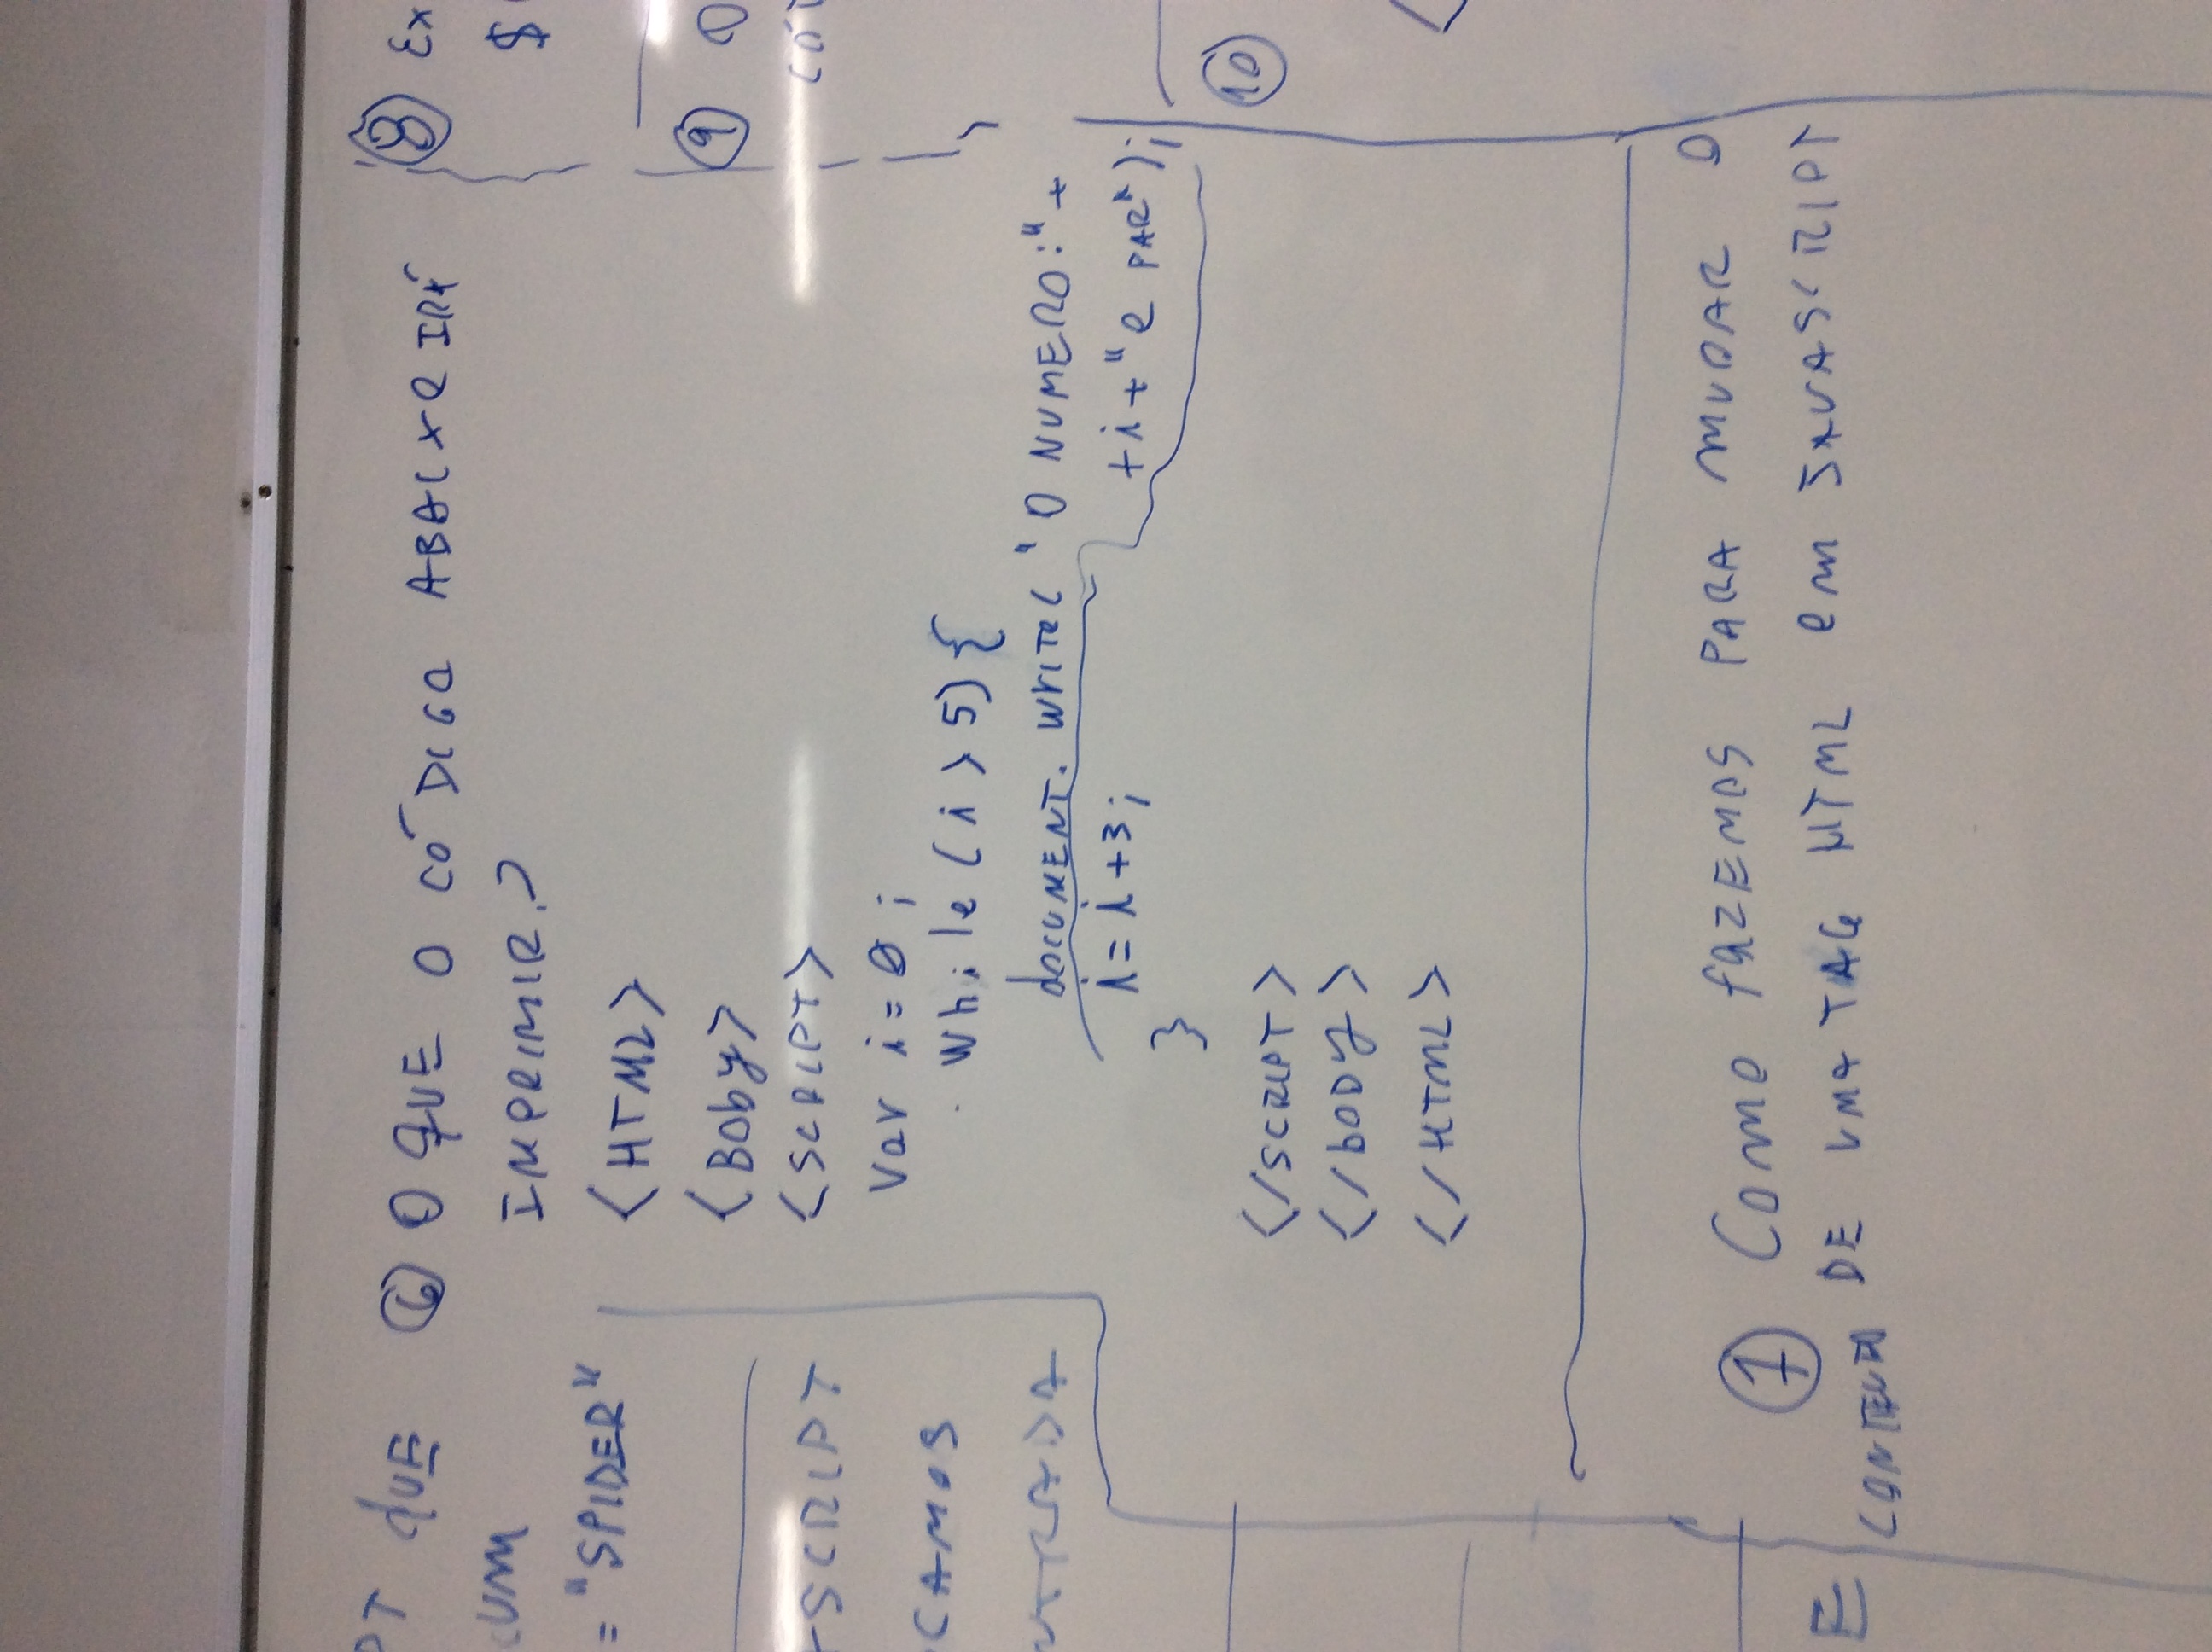 QUE
CUM
= "SPIDER"
SCRIPT
CAMOS
NTRADA
E
⑥ O QUE O CÓDIGO ABAIXO IRÁ
IMPRIMIR.?
<HTML>
<Boby>
<SCRIPT>
Var i = 0 ;
while ( i > 5) {
document. write( "O NUMERO:" +
+ i + "e PAR");
i = i + 3 ;
}
</SCRIPT>
</bODy>
</HTML>
⑦ Como fazEMOS PARA MUDAR O
CONTEUDO DE UMA TAG HTML em JAVASCRIPT
⑧ Ex
$
⑨ O
CÓD
⑩
<